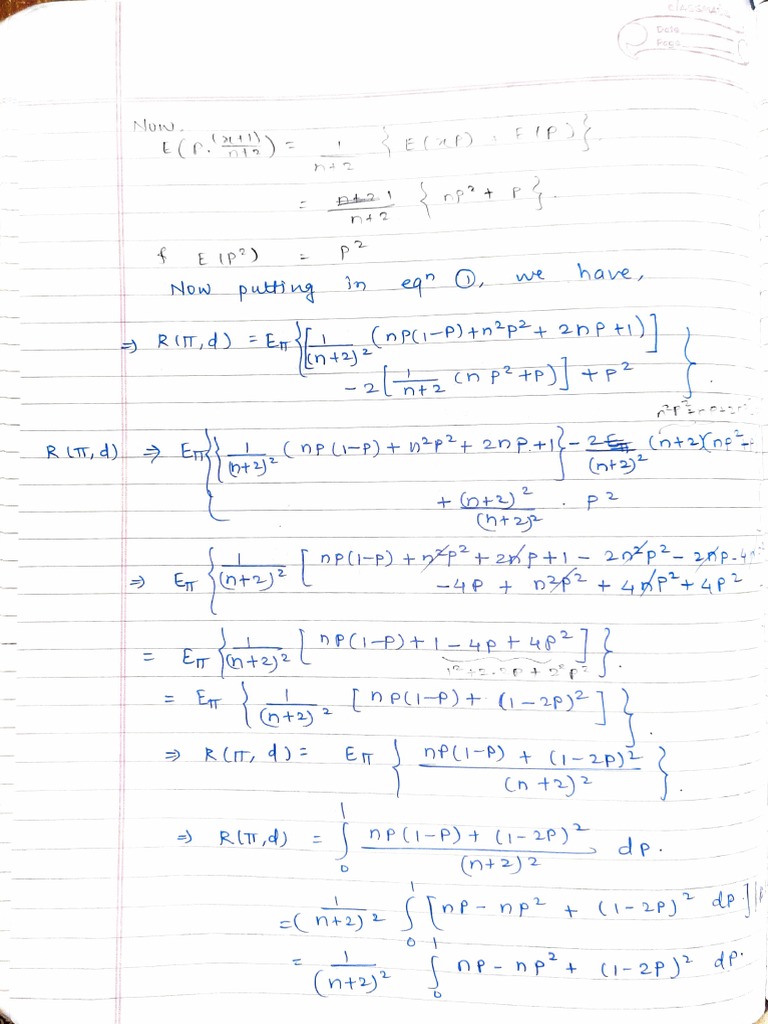 classmate
Date
Page
Now.
E(p.(x+1)/n+2) = 1/n+2 { E(xp) + E(p) }.
= n+2 1/n+2 { np² + p }.
& E(p²) = p²
Now putting in eqn ①, we have,
⇒ R(π,d) = Eπ{[1/(n+2)² (np(1-p)+n²p²+2np+1)]
-2[1/n+2 (np²+p)] + p² }.
R(π,d) ⇒ Eπ{{1/(n+2)² (np(1-p)+n²p²+2np+1} - 2/(n+2)² (n+2)(np²+
+ (n+2)²/(n+2)² . p²
⇒ Eπ {1/(n+2)² [np(1-p)+n²p²+2np+1-2n²p²-2np-4n
-4p + n²p² + 4np² + 4p²
= Eπ {1/(n+2)² [np(1-p)+1-4p+4p²]}.
= Eπ {1/(n+2)² [np(1-p)+(1-2p)²]}.
⇒ R(π,d) = Eπ {np(1-p)+(1-2p)²/(n+2)²}.
⇒ R(π,d) = ∫₀¹ np(1-p)+(1-2p)²/(n+2)² dp.
= 1/(n+2)² ∫₀¹ [np-np²+(1-2p)² dp]
= 1/(n+2)² ∫₀¹ np-np²+(1-2p)² dp.